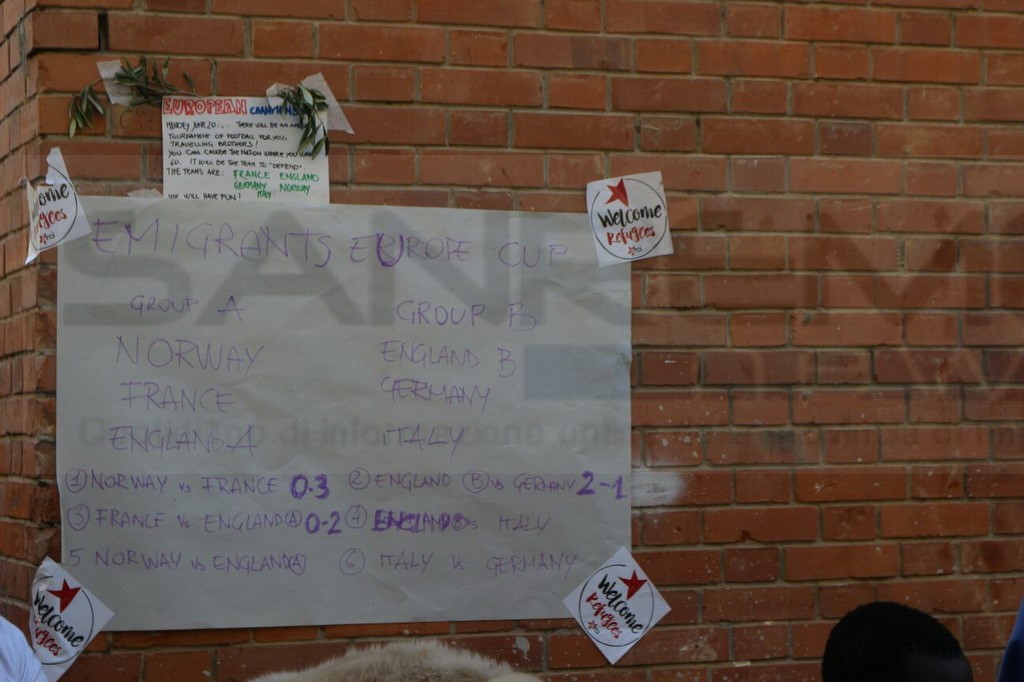 EUROPEAN
MONDAY JUNE 20.... THERE WILL BE AN
TOURNAMENT OF FOOTBALL FOR YOU,
TRAVELLING BROTHERS!
YOU CAN THE NATION WHERE YOU
GO. IT WILL BE THE TEAM TO "DEFEND"
THE TEAMS ARE: FRANCE ENGLAND
GERMANY NORWAY
ITALY
WE WILL HAVE FUN!
Welcome
Refugees
EMIGRANTS EUROPE CUP
GROUP A
GROUP B
NORWAY
ENGLAND B
FRANCE
GERMANY
ENGLAND A
ITALY
① NORWAY vs FRANCE 0-3
② ENGLAND Ⓑ vs GERMANY 2-1
③ FRANCE vs ENGLAND Ⓐ 0-2
④ ENGLAND Ⓑ vs ITALY
5 NORWAY vs ENGLAND Ⓐ
⑥ ITALY vs GERMANY
Welcome
Refugees
Welcome
Refugees
Welcome
Refugees
SANREMO